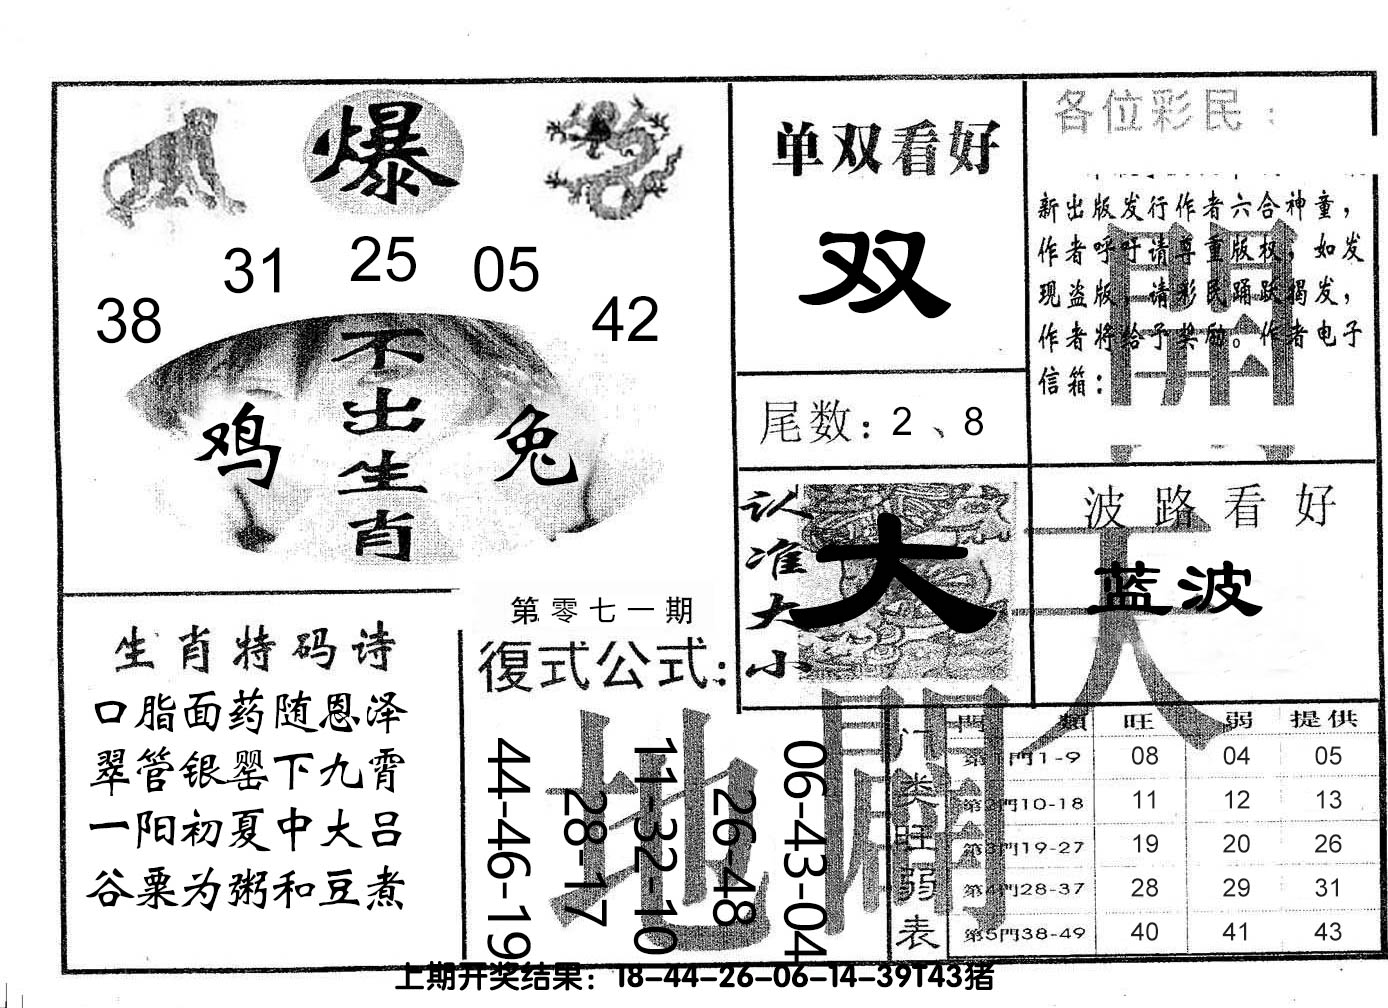 爆
31 25 05
38 42
不出生肖
鸡 兔
单双看好
双
尾数：2、8
各位彩民：
新出版发行作者六合神童，
作者呼吁请尊重版权，如发
现盗版，请彩民踊跃揭发，
作者将给予奖励。作者电子
信箱：
认准大小
大
波路看好
蓝波
生肖特码诗
口脂面药随恩泽
翠管银罂下九霄
一阳初夏中大吕
谷粟为粥和豆煮
第零七一期
復式公式：
44-46-19
28-17
11-32-10
26-48
06-43-04
天
地
門类旺弱表
門類 旺 弱 提供
第1門1-9 08 04 05
第2門10-18 11 12 13
第3門19-27 19 20 26
第4門28-37 28 29 31
第5門38-49 40 41 43
上期开奖结果：18-44-26-06-14-39T43猪